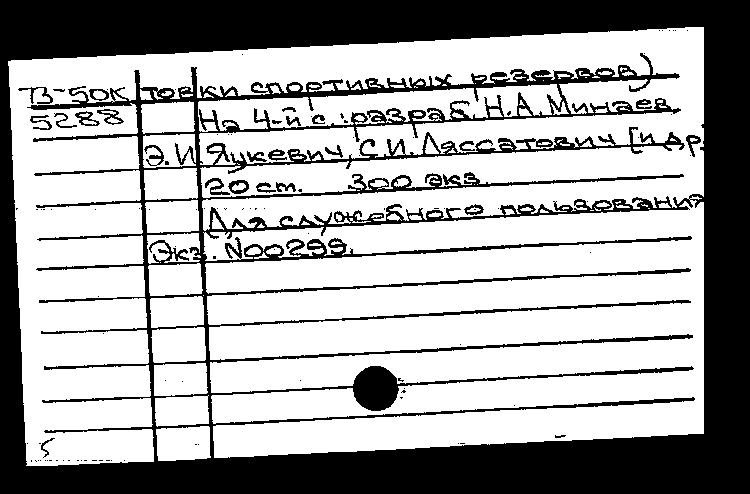 В-50К товки спортивных резервов)
5288 На 4-й с.: разраб. Н.А. Минаев,
Э.И. Яцкевич, С.И. Ляссатович [и др.
20 ст. 300 экз.
Для служебного пользования
Экз. N00299.
5